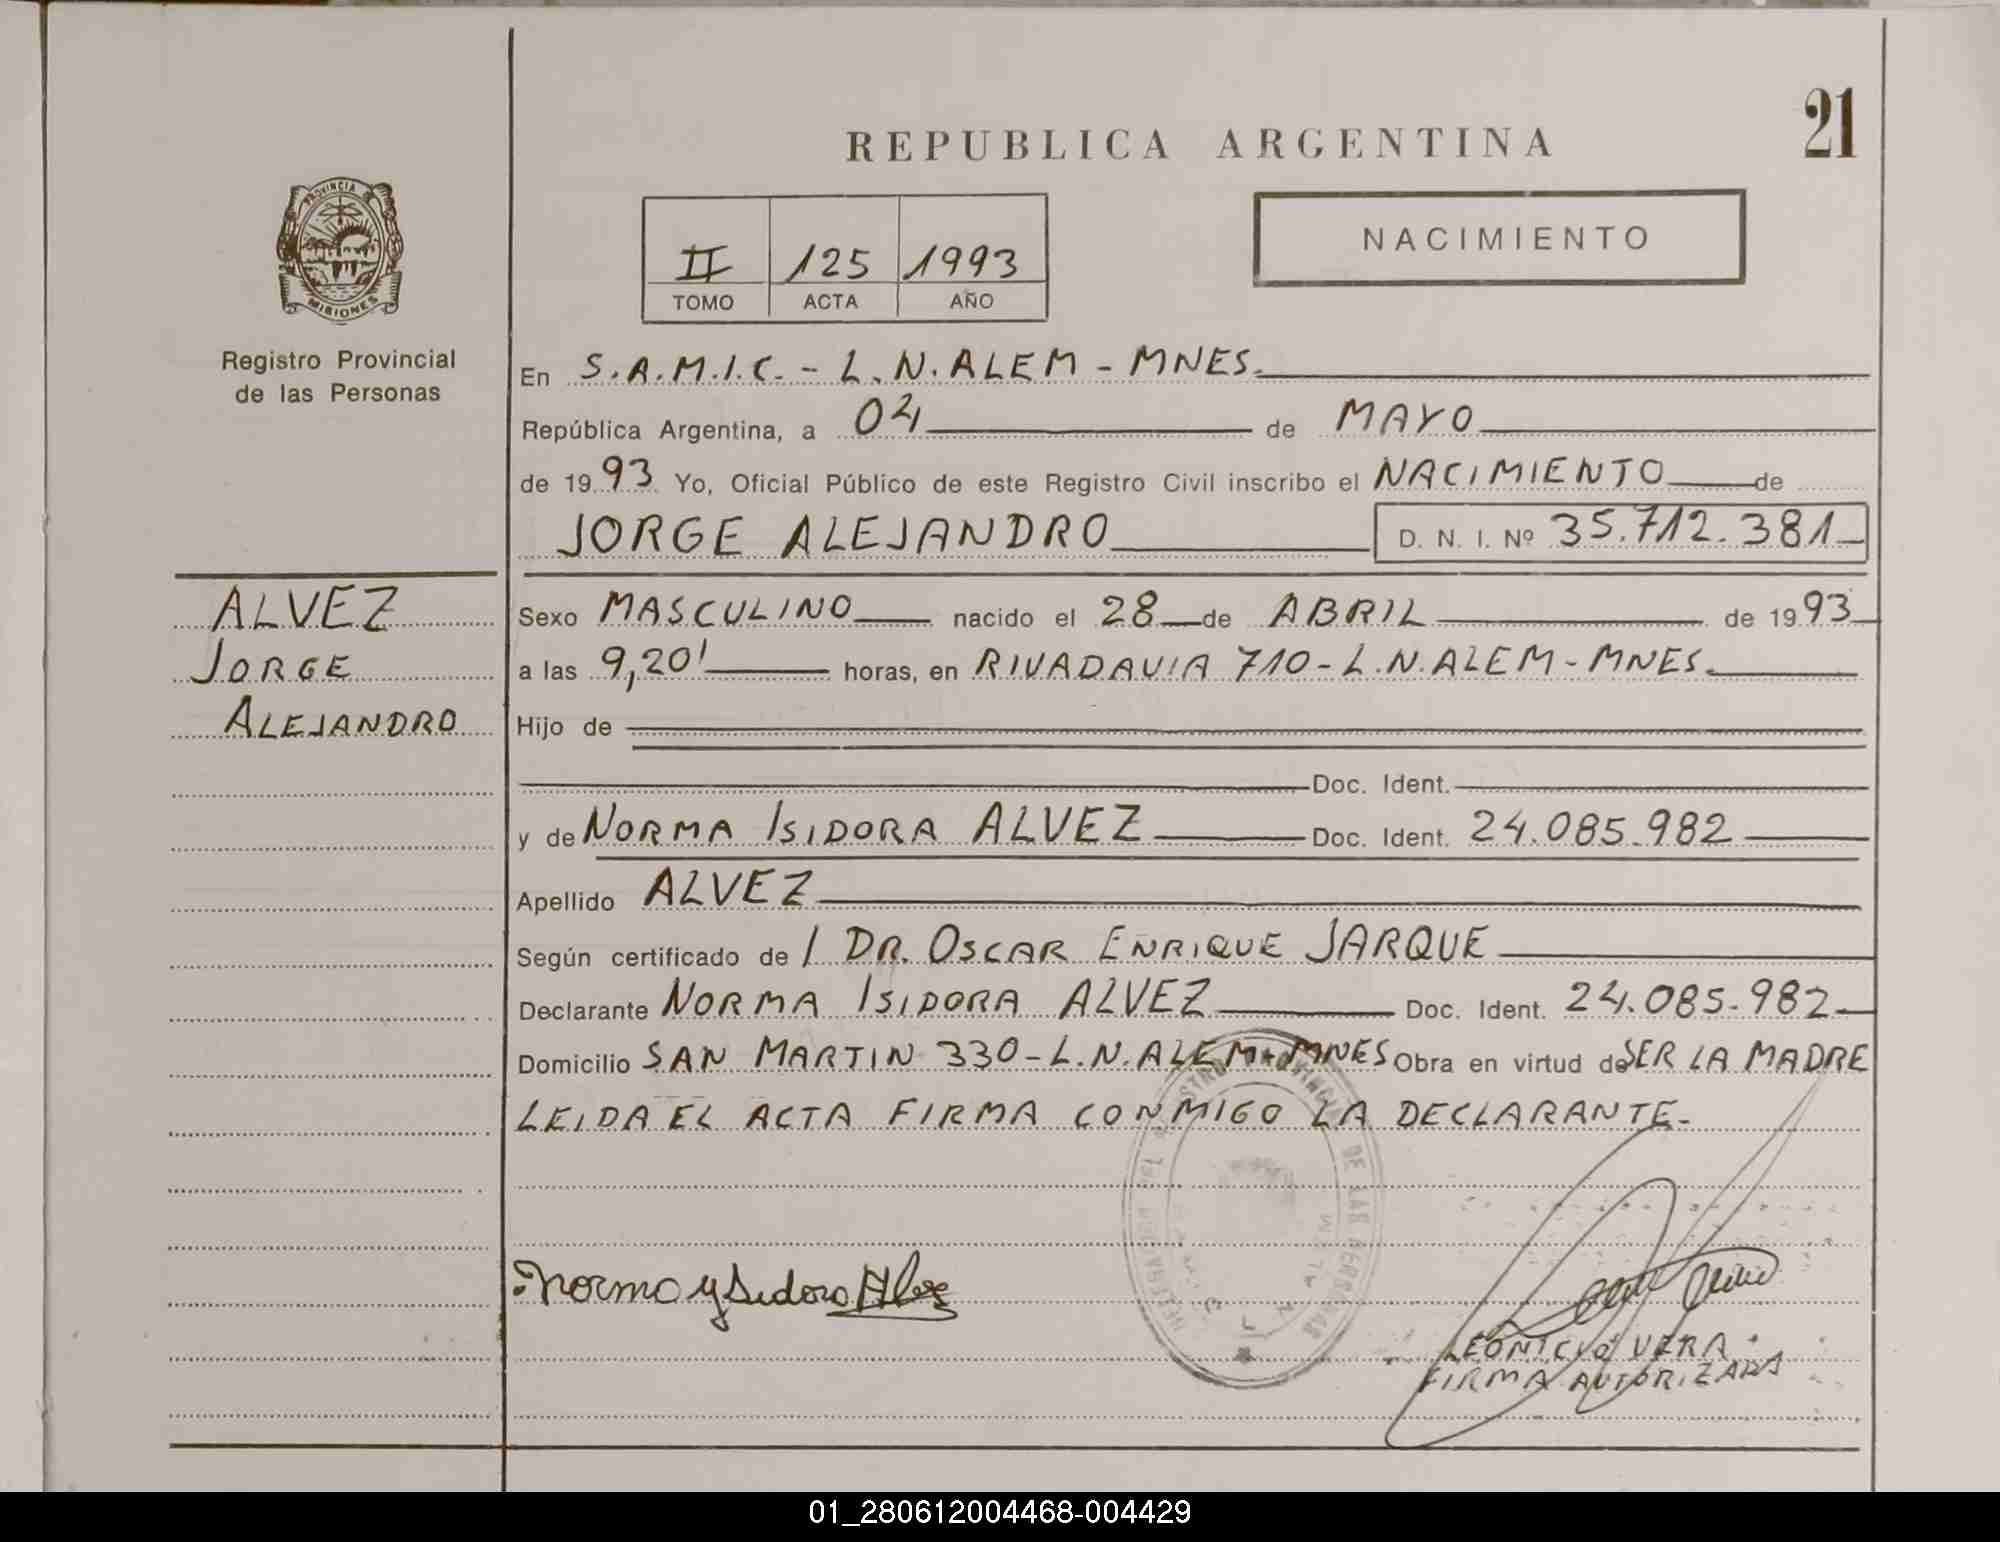 REPUBLICA ARGENTINA
21
PROVINCIA DE
MISIONES
Registro Provincial
de las Personas
II 125 1993
TOMO ACTA AÑO
NACIMIENTO
En S.A.M.I.C. - L.N.ALEM - MNES.
República Argentina, a 04 de MAYO
de 1993 Yo, Oficial Público de este Registro Civil inscribo el NACIMIENTO de
JORGE ALEJANDRO D. N. I. Nº 35.712.381
ALVEZ
JORGE
ALEJANDRO
Sexo MASCULINO nacido el 28 de ABRIL de 1993
a las 9,20' horas, en RIVADAVIA 710 - L.N.ALEM - MNES.
Hijo de
Doc. Ident.
y de NORMA ISIDORA ALVEZ Doc. Ident. 24.085.982
Apellido ALVEZ
Según certificado de / DR. OSCAR ENRIQUE JARQUE
Declarante NORMA ISIDORA ALVEZ Doc. Ident. 24.085.982
Domicilio SAN MARTIN 330 - L.N.ALEM - MNES Obra en virtud de SER LA MADRE
LEIDA EL ACTA FIRMA CONMIGO LA DECLARANTE.
PROVINCIAL DE LAS PERSONAS
Norma Ysidora Alvez
VERA
FIRMA AUTORIZADA
01_280612004468-004429